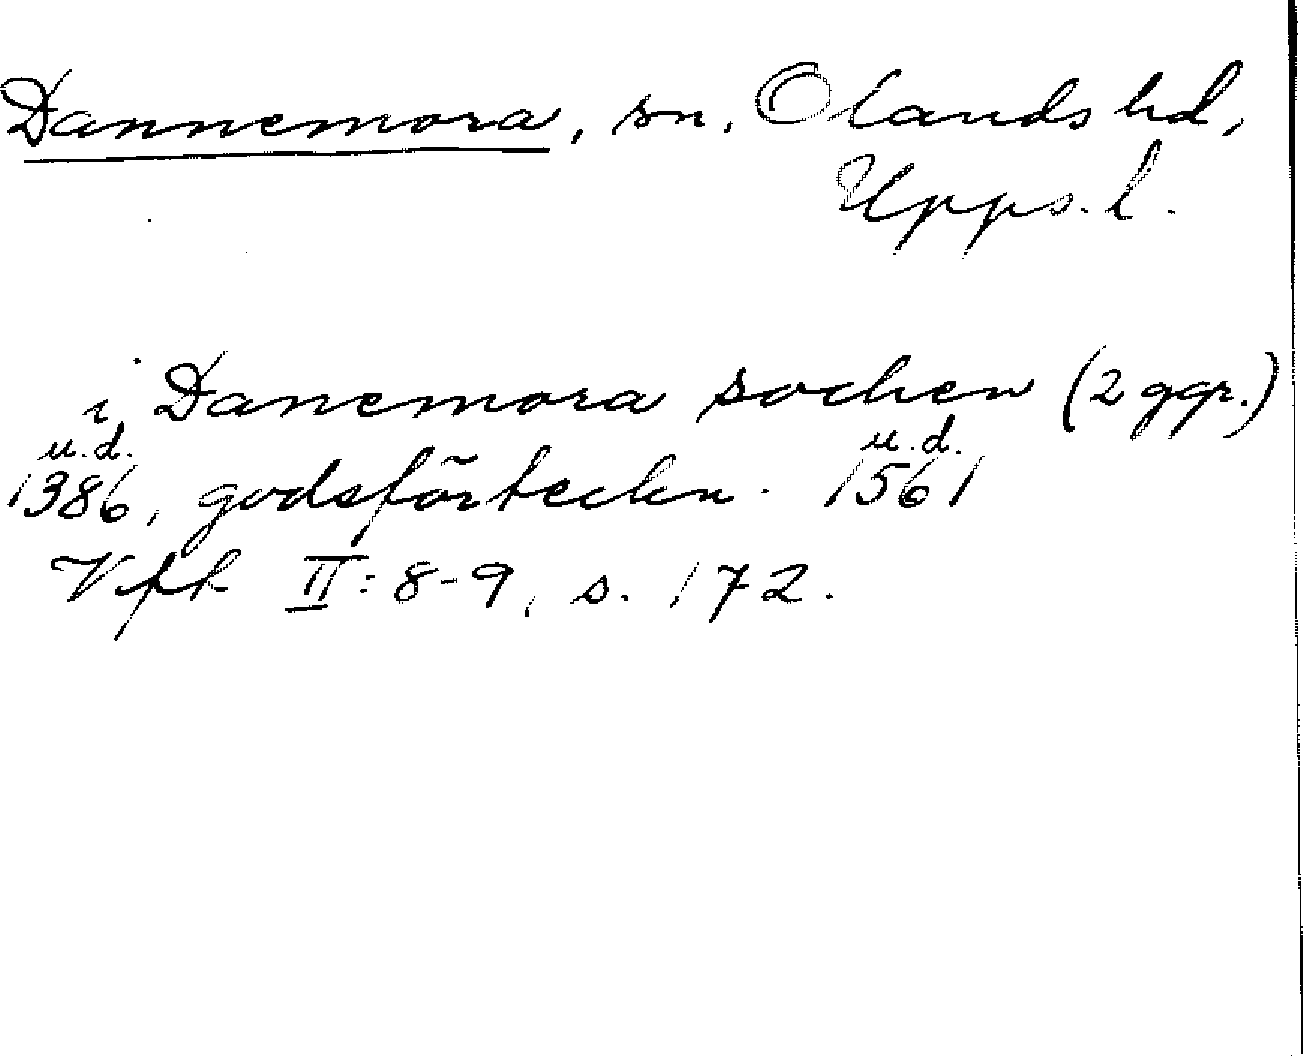 Dannemora, sn, Olands hd,
Upps. l.
i Danemora sochen (2 ggr.)
u.d. u.d.
1386, godsförteckn. 1561
Vfrk II: 8-9, s. 172.